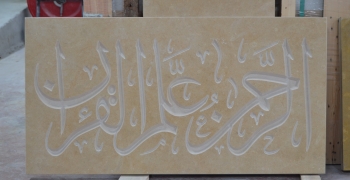 الرَّحمن علَّم القرءان